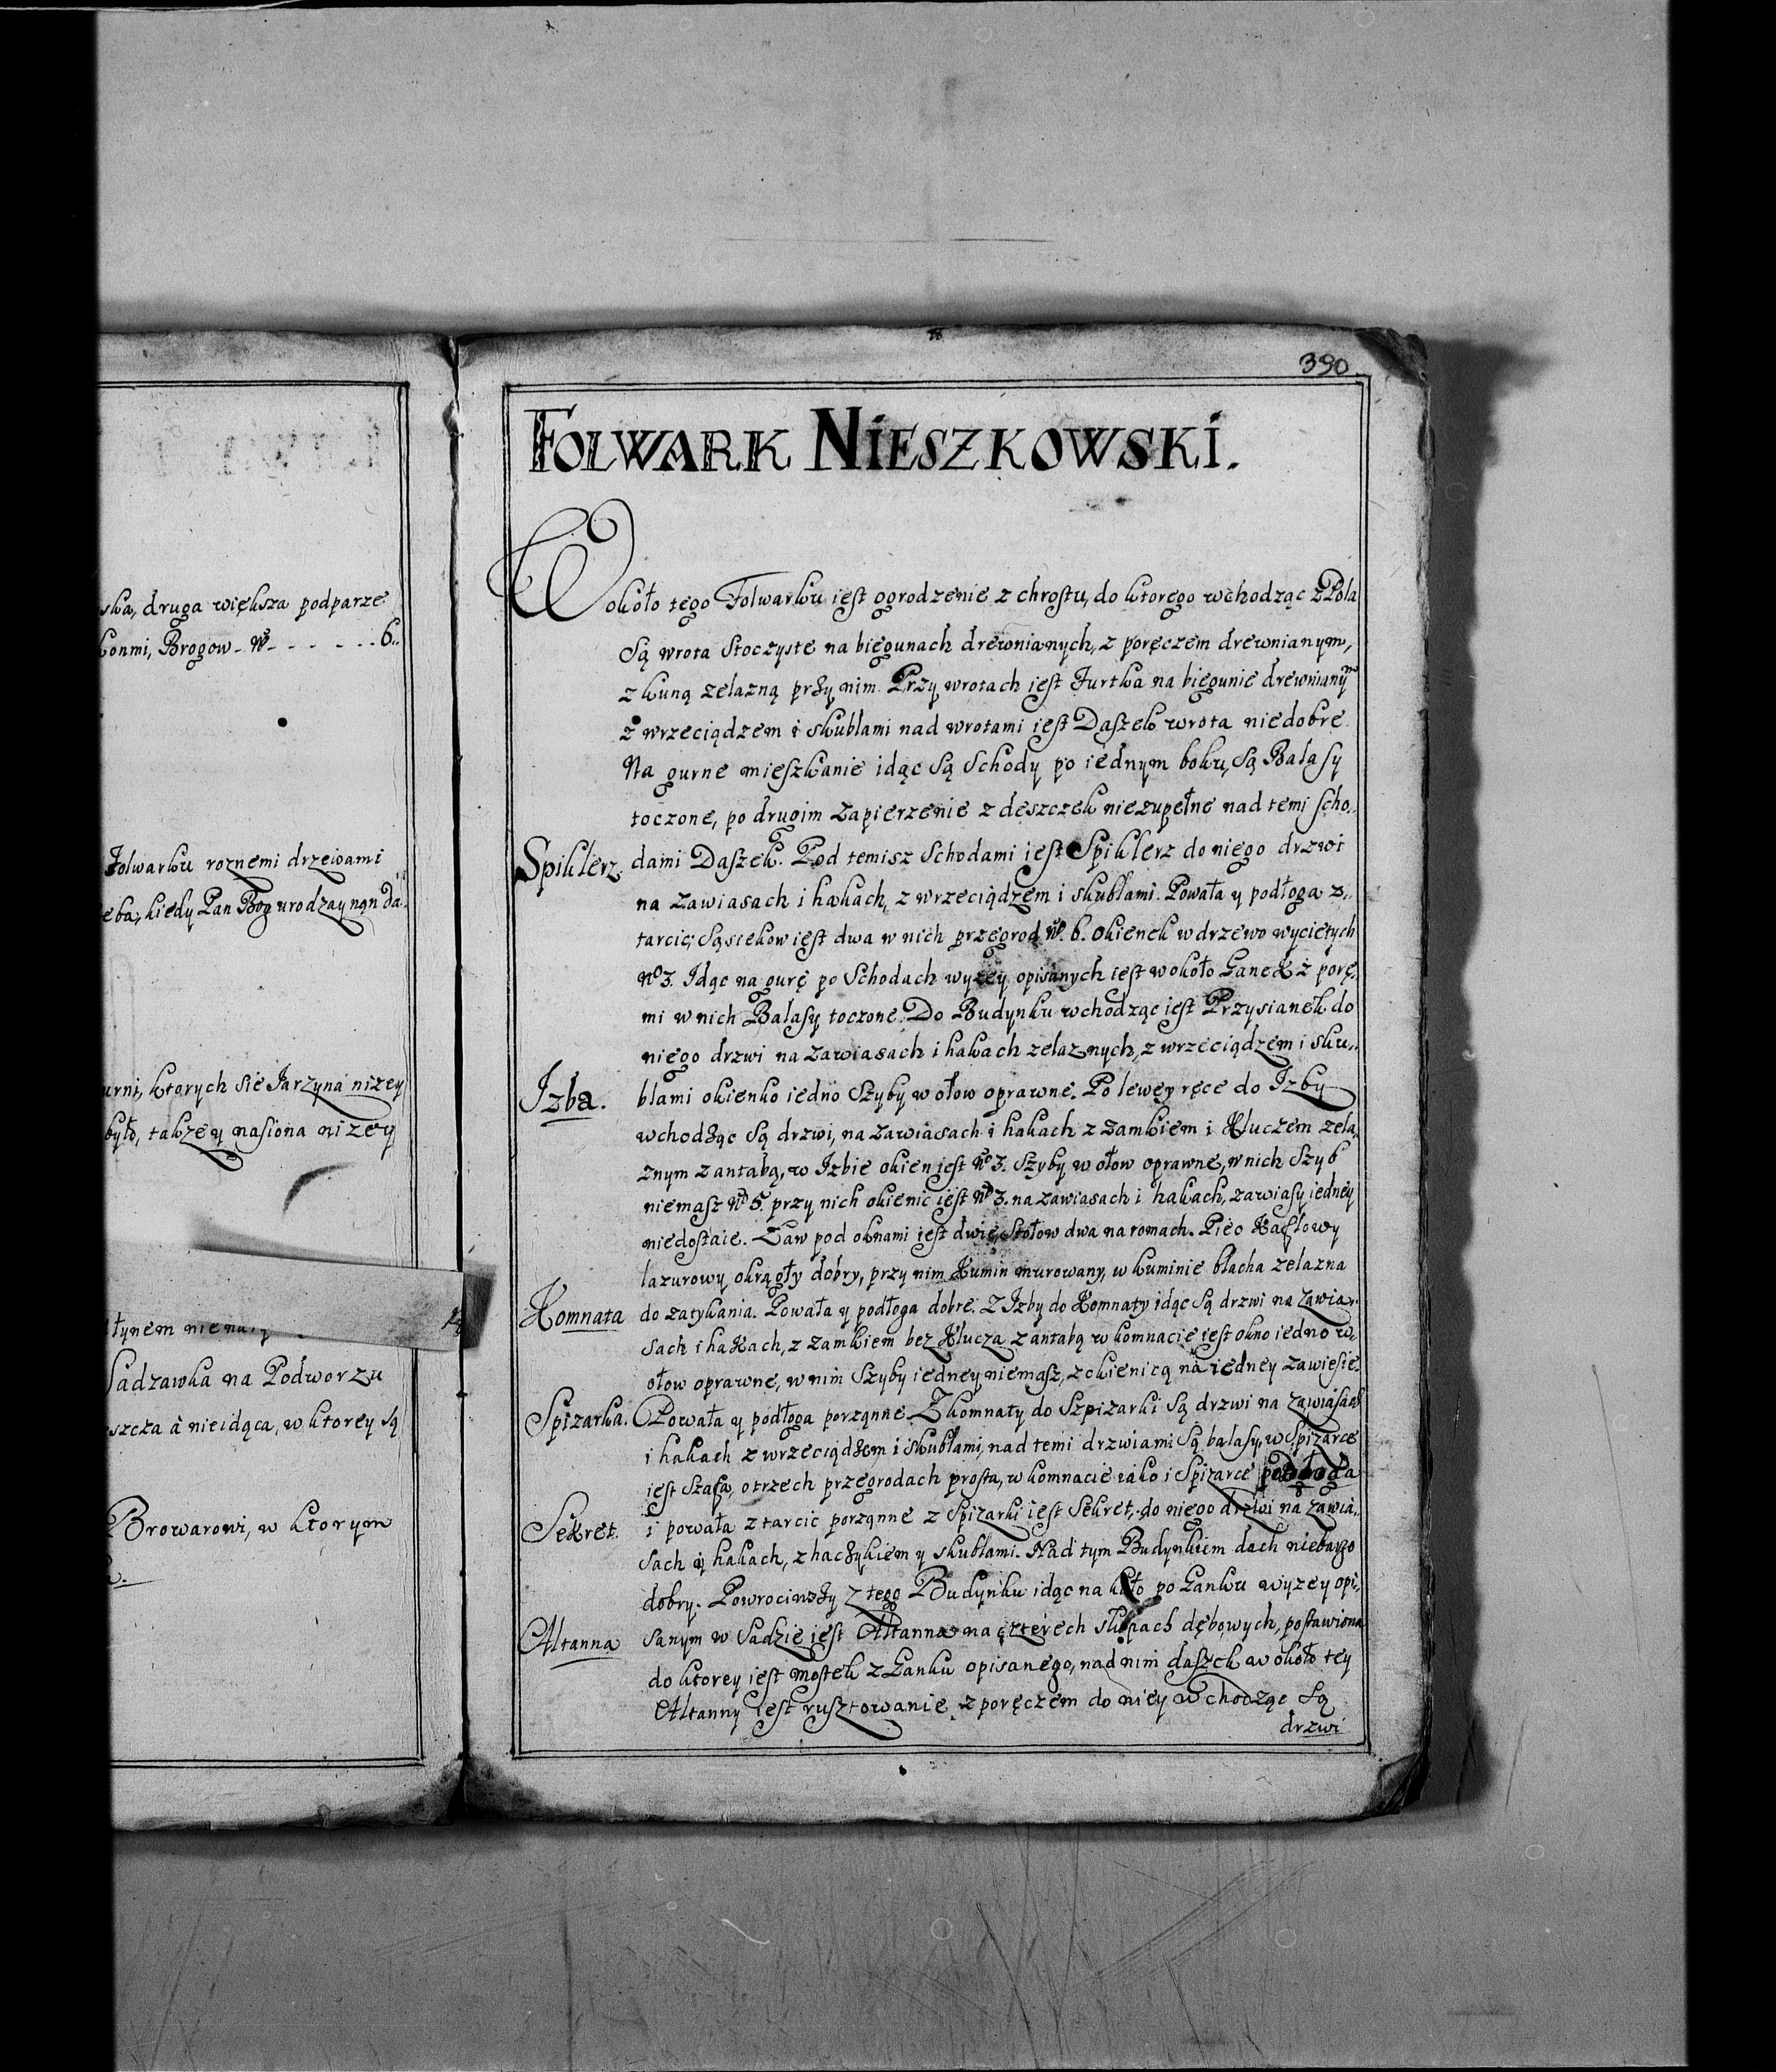 ska, druga większa podparze
konmi, Brogow - No - - - - - - 6..
Folwarku roznemi drzewami
eba, kiedy Pan Bog urodzay nan da.
urni, ktorych sie Jarzyna nizey
było, takze y nasiona nizey
łynem
Sadzawka na Podworzu
szcza à nieidąca, w ktorey są
Browarowi, w ktorym
390
FOLWARK NIESZKOWSKI.
Około tego Folwarku iest ogrodzenie z chrostu, do ktorego wchodząc z Pola
Są wrota Stoczyste na biegunach drewnianych, z poręczem drewnianym,
z kuną zelazną przy nim. Przy wrotach iest Furtka na biegunie drewnianym
z wrzeciądzem i skublami nad wrotami iest Daszek wrota niedobre
Na gurne mieszkanie idąc Są Schody po iednym boku, Są Balasy
toczone, po drugim zapierzenie z deszczek niezupełne nad temi scho..
Spiklerz. dami Daszek. Pod temisz Schodami iest Spiklerz do niego drzwi
na zawiasach i hakach, z wrzeciądzem i skublami. Powała y podłoga z..
tarcic; Sąsiekow iest dwa w nich przegrod No. 6. okienek w drzewo wyciętych
No 3. Idąc na gurę po Schodach wyzey opisanych iest wokoło Ganek z porę..
mi w nich Balasy toczone. Do Budynku wchodząc iest Przysianek do
niego drzwi na zawiasach i hakach zelaznych, z wrzeciądzem i sku..
Izba. blami okienko iedno Szyby w ołow oprawne. Po lewey ręce do Izby
wchodząc Są drzwi, na zawiasach i hakach z zamkiem i Kluczem zela,
znym z antabą, w Izbie okien iest No 3. Szyby w ołow oprawne, w nich Szyb
niemasz No 5. przy nich okienic iest No 3. na zawiasach i hakach, zawiasy iedney
niedostaie. Ław pod oknami iest dwie, Stołow dwa na romach. Piec Kaflowy
lazurowy okrągły dobry, przy nim Kumin murowany, w kuminie blacha zelazna
Komnata do zatykania. Powała y podłoga dobre. Z Izby do Komnaty idąc Są drzwi na zawia..
sach i hakach, z zamkiem bez Klucza z antabą w komnacie iest okno iedno w..
ołow oprawne, w nim Szyby iedney niemasz, z okienicą na iedney zawiesie.
Spizarka. Powała y podłoga porządne. Z komnaty do Szpizarki Są drzwi na zawiasach
i hakach z wrzeciądzem i skublami, nad temi drzwiami Są balasy, w Spizarce
iest Szafa, o trzech przegrodach prosta, w komnacie iako i Spizarce podłoga
Sekret. i powała z tarcic porządne z Spizarki iest Sekret, do niego drzwi na zawia..
sach y hakach, z haczykiem y skublami. Nad tym Budynkiem dach niebarzo
dobry. Powrociwszy z tego Budynku idąc na koło po Ganku wyzey opi..
Altanna sanym w Sadzie iest Altanna na czterech słupach dębowych, postawiona
do ktorey iest mostek z Ganku opisanego, nad nim daszek w około tey
Altanny iest rusztowanie z poręczem do niey wchodząc Są
drzwi